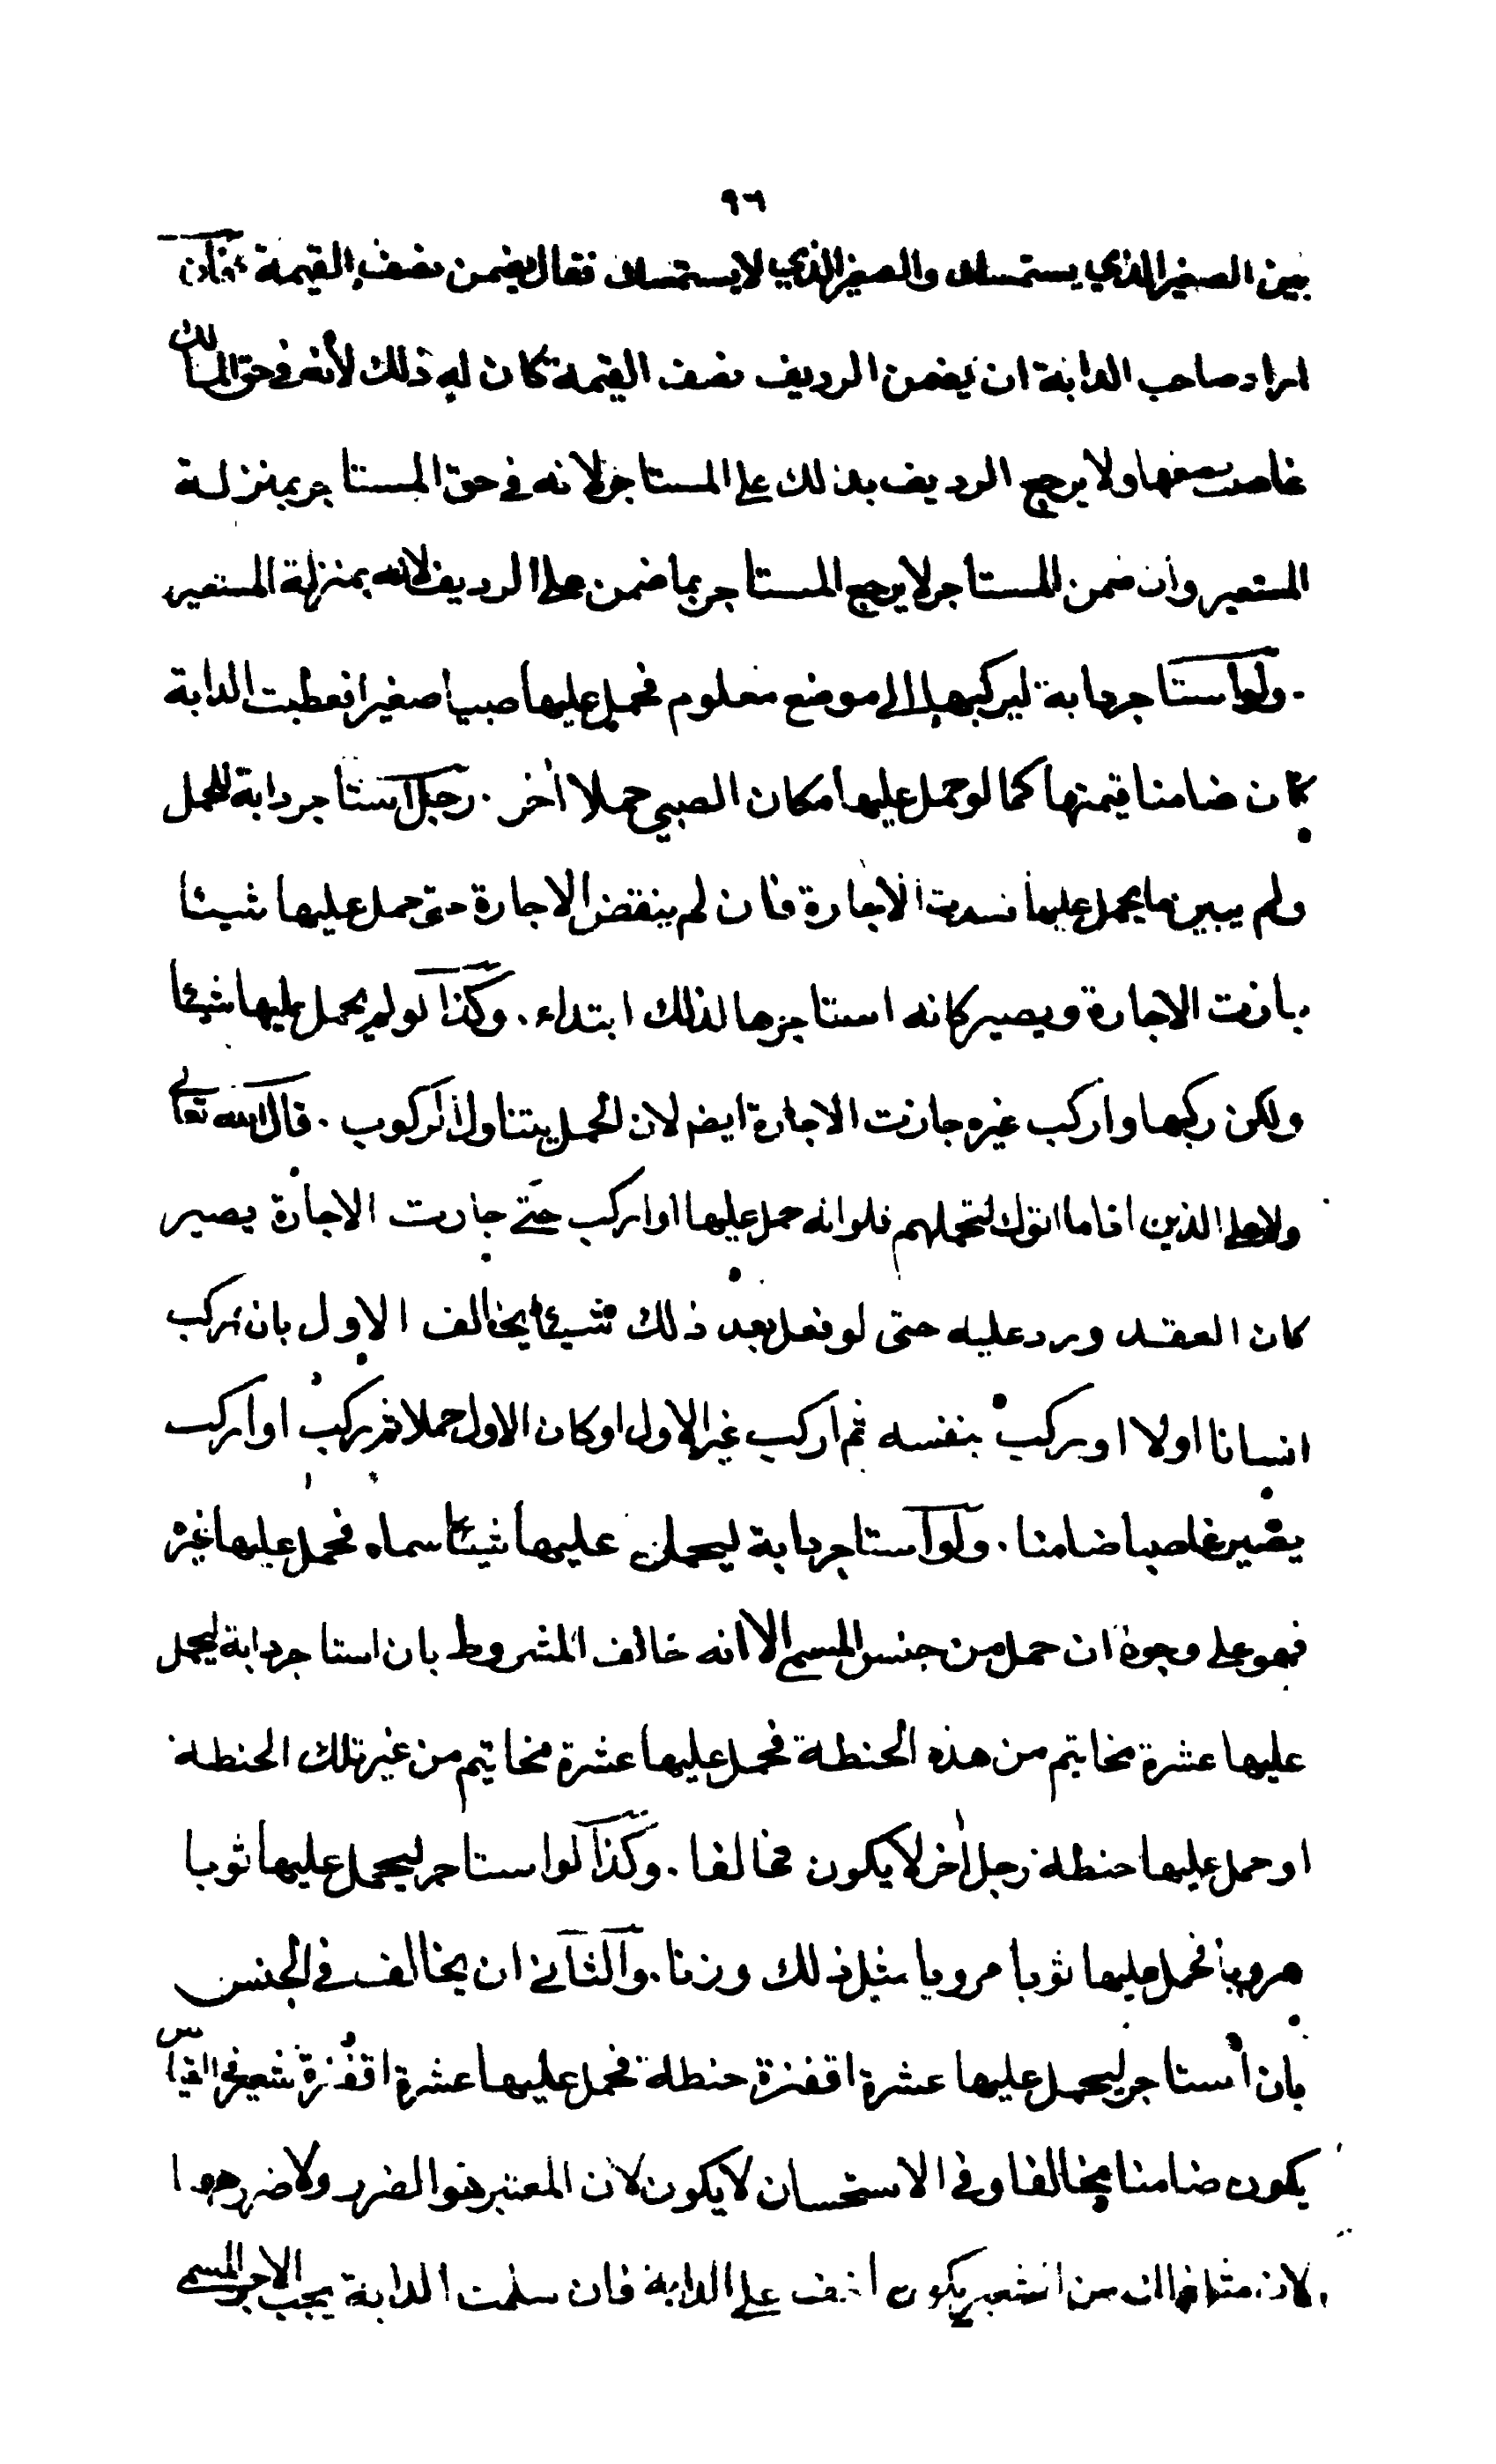 ٩٦
بين الصغير الذي يستمسك والصغير الذي لا يستمسك فقال يضمن نصف القيمة فان
اراد صاحب الدابة ان يضمن الرديف نصف القيمة كان له ذلك لأنه في حق المالك
غاصب نصفها ولا يرجع الرديف بذلك على المستاجر لانه في حق المستاجر بمنزلة
المستعير وان ضمن المستاجر لا يرجع المستاجر بما ضمن على الرديف لانه بمنزلة المستعير
. ولو استاجر دابة ليركبها الى موضع معلوم فحمل عليها صبيا صغيرا فعطبت الدابة
كان ضامنا قيمتها كما لو حمل عليها مكان الصبي حملا اخر . رجل استاجر دابة للحمل
ولم يبين ما يحمل عليها فسدت الاجارة فان لم ينقض الاجارة حتى حمل عليها شيئا
جازت الاجارة ويصير كانه استاجرها لذلك ابتداء . وكذا لو لم يحمل عليها شيئا
ولكن ركبها واركب غيره جازت الاجارة ايضا لان الحمل يتناول الركوب . قال الله تعالى
ولا على الذين اذا ما اتوك لتحملهم فلو انه حمل عليها او اركب حتى جازت الاجارة يصير
كان العقد ورد عليه حتى لو فعل بعد ذلك شيئا يخالف الاول بان يركب
انسانا اولا او يركب بنفسه ثم اركب غير الاول او كان الاول حملا ثم يركب او اركب
يصير غاصبا ضامنا . ولو استاجر دابة ليحمل عليها شيئا سماه فحمل عليها غيره
فهو على وجوه ان حمل من جنس المسمى الا انه خالف المشروط بان استاجر دابة ليحمل
عليها عشرة مخاتيم من هذه الحنطة فحمل عليها عشرة مخاتيم من غير تلك الحنطة
او حمل عليها حنطة رجل اخر لا يكون مخالفا . وكذا لو استاجر ليحمل عليها ثوبا
هرويا فحمل عليها ثوبا مرويا مثل ذلك وزنا . والثاني ان يخالف في الجنس
بان استاجر ليحمل عليها عشرة اقفزة حنطة فحمل عليها عشرة اقفزة شعير في القياس
يكون ضامنا مخالفا وفي الاستحسان لا يكون لان المعتبر هو الضرر ولا ضرر ههنا
لان مثل ذلك من الشعير يكون اخف على الدابة فان سلمت الدابة يجب الاجر المسمى